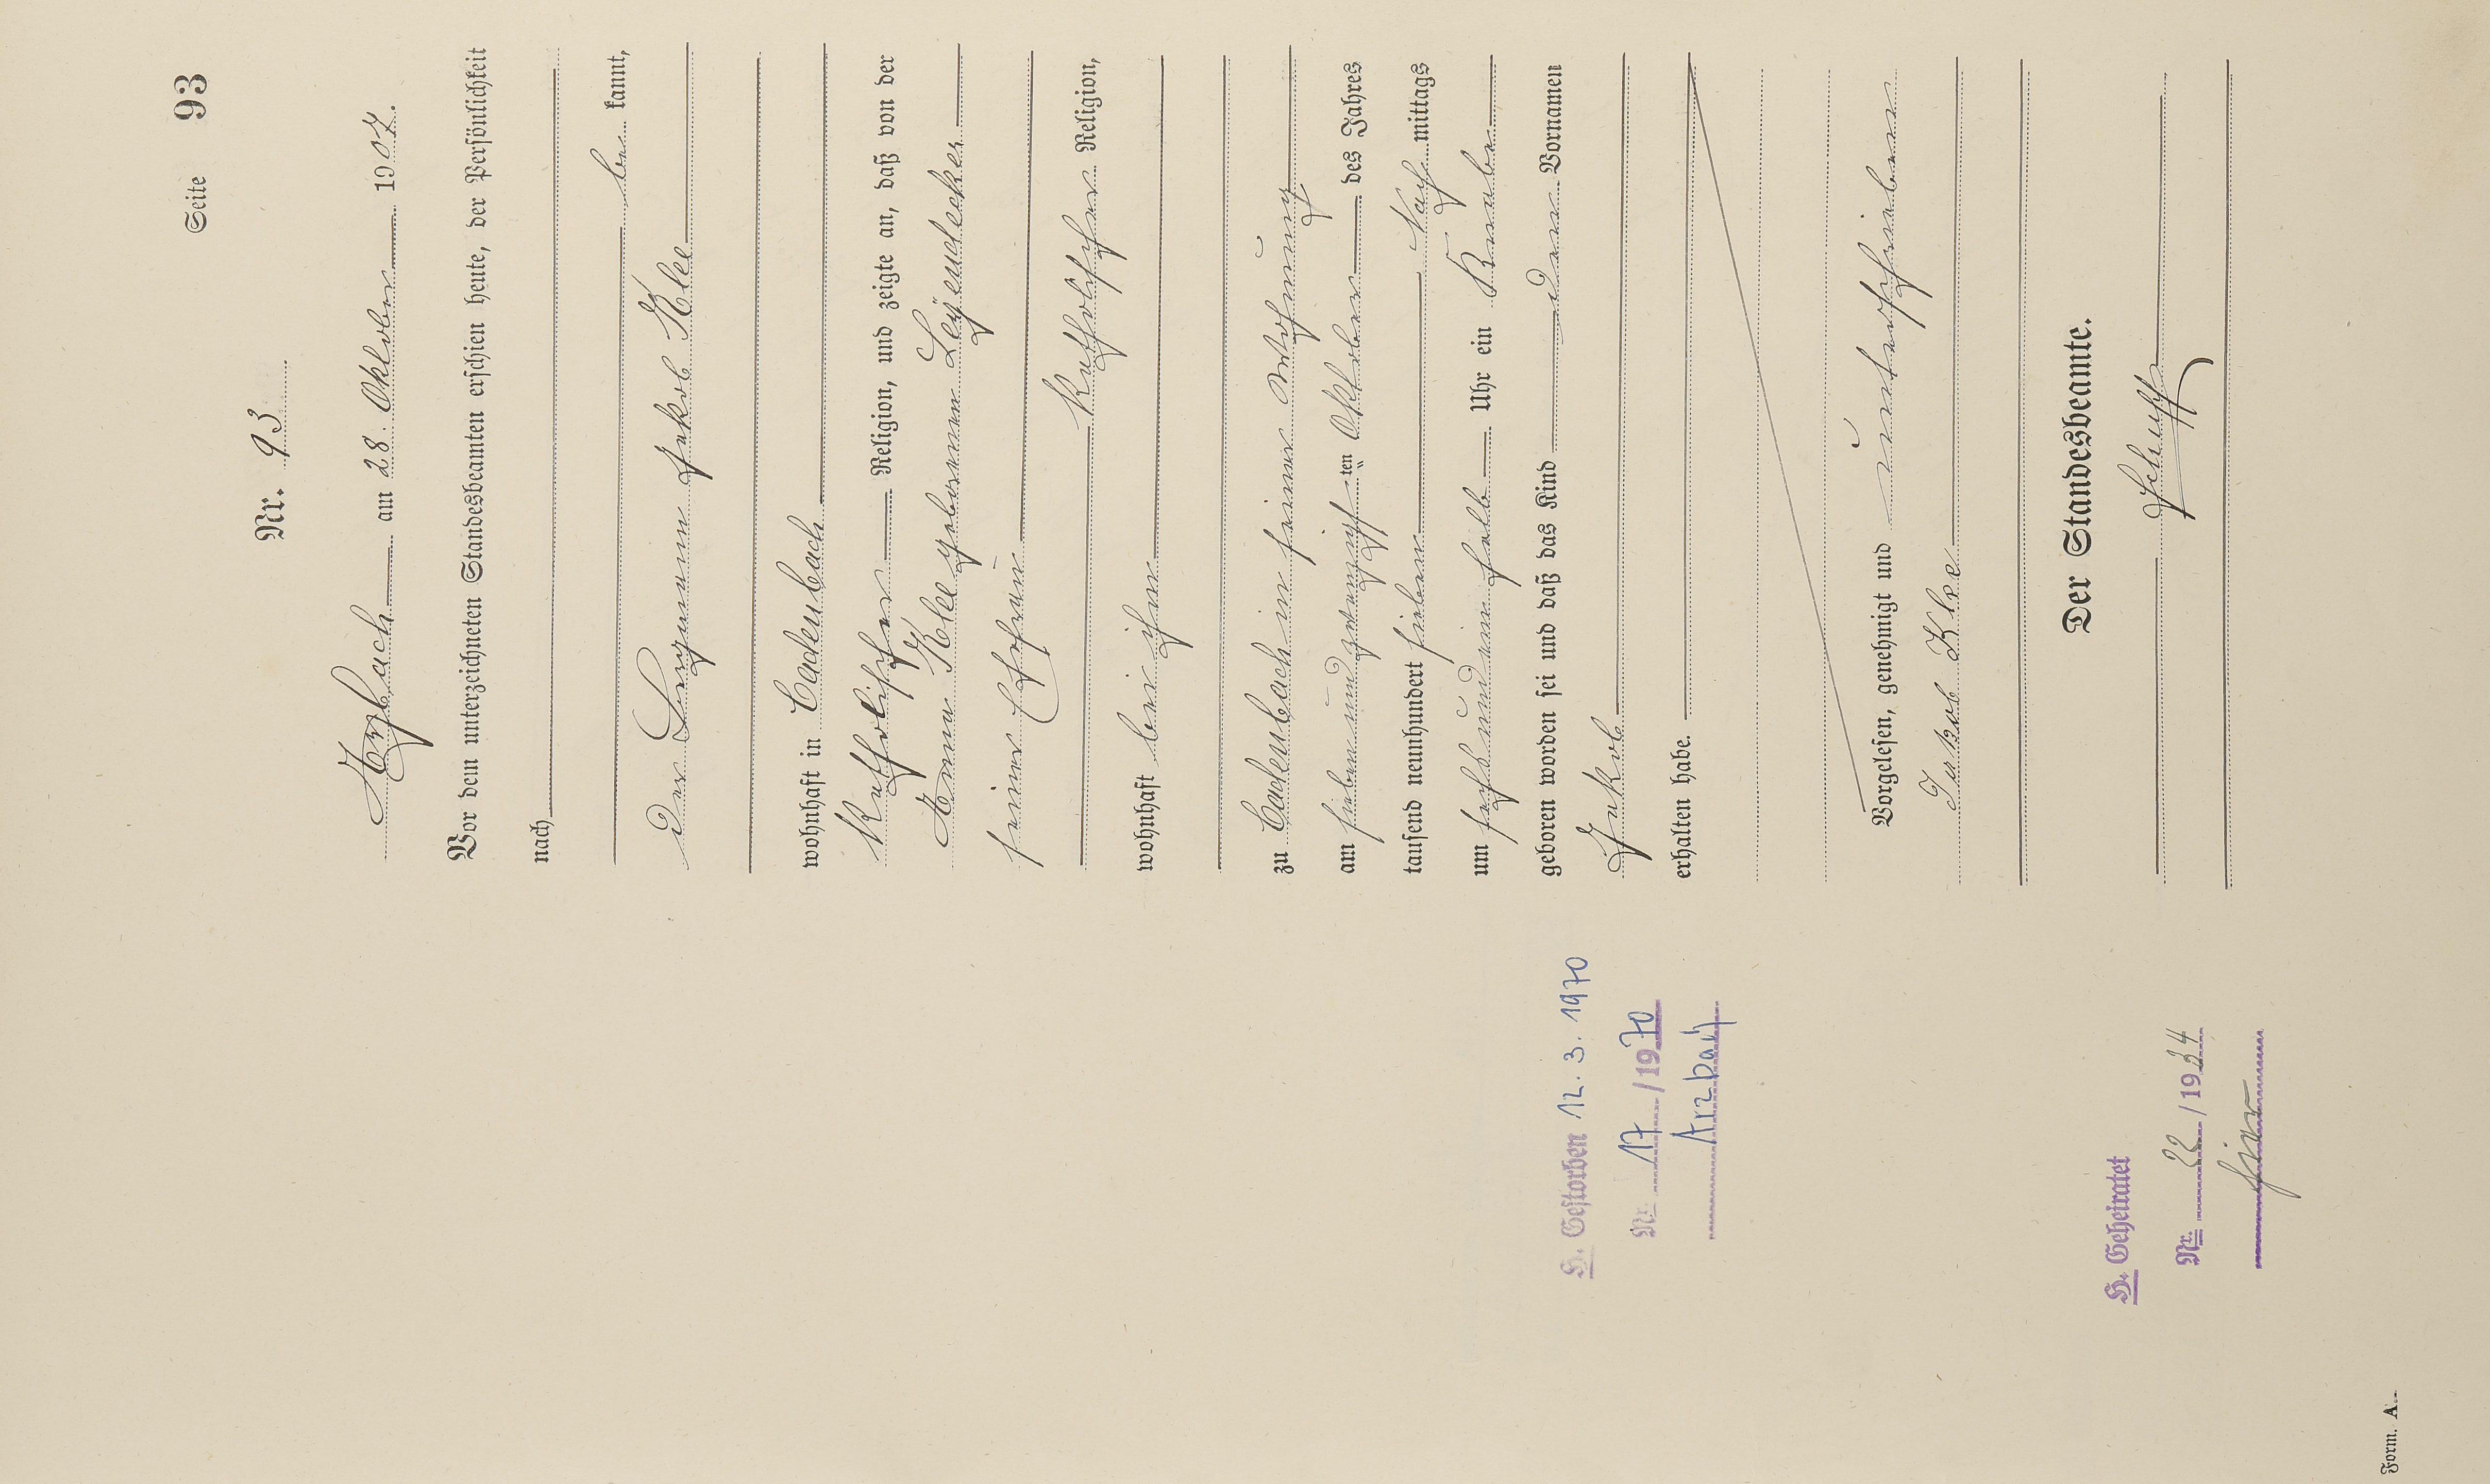 Seite 93
Nr. 93
Arzbach am 28. Oktober 1907.
Vor dem unterzeichneten Standesbeamten erschien heute, der Persönlichkeit
nach
be kannt,
der Bergmann Jakob Klee
wohnhaft in Cadenbach
katholischer Religion, und zeigte an, daß von der
Anna Klee geborenen Leyendecker
seiner Ehefrau
katholischer Religion,
wohnhaft bei ihm
zu Cadenbach in seiner Wohnung
am siebenundzwanzigsten Oktober des Jahres
tausend neunhundert sieben Nach mittags
um sechsundeinhalb Uhr ein Knabe
geboren worden sei und daß das Kind den Vornamen
Jakob
erhalten habe.
Vorgelesen, genehmigt und unterschrieben
Jakob Klee
Der Standesbeamte.
H. Gestorben 12.3.1970
Nr. 17/1970
Arzbach
H. Geheiratet
Nr. 22/1934
hier
Form. A.